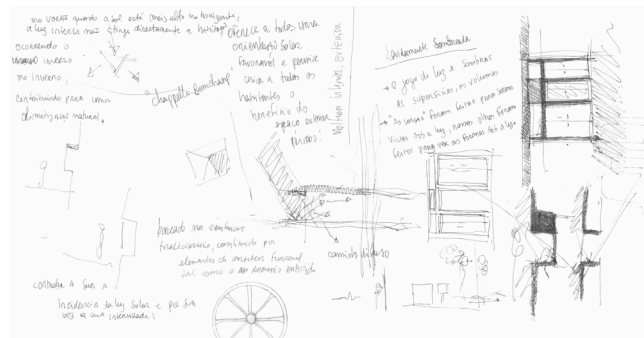 no verão quando o sol está mais alto no horizonte,
a luz intensa não atinge directamente a
ocorrendo o
inverso
no inverno,
contribuindo para uma
climatização natural.
"chappelle Ronchamp"
oferece a todos uma
orientação solar
favorável e permite
assim a todos os
habitantes o
benefício do
espaço exterior
privado!
interior, exterior
Levemente Sombreada
→ O jogo da luz e sombras
As superfícies, os volumes
→ "As casas" foram feitas para serem
vistas sob a luz, nossos olhos foram
feitos para ver as formas sob a luz.
baseado na
tradicional, constituído por
elementos de carácter funcional
tal como o
controla a sua
Incidência da luz solar e por sua
vez a sua intensidade!